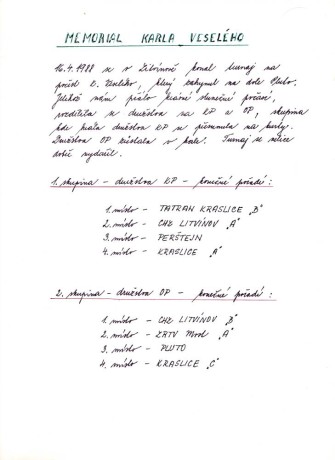 MEMORIAL KARLA VESELÉHO
16.4.1988 se v Litvínově konal turnaj na
počest K. Veselého, který zahynul na dole Pluto.
Jelikož nám přálo krásné slunečné počasí,
rozdělila se družstva na KP a OP, skupina
kde hrála družstva KP se přesunula na kurty.
Družstva OP zůstala v hale. Turnaj se velice
dobře vydařil.
1. skupina - družstva KP - konečné pořadí :
1. místo - TATRAN KRASLICE "B"
2. místo - CHZ LITVÍNOV "A"
3. místo - PERŠTEJN
4. místo - KRASLICE "A"
2. skupina - družstva OP - konečné pořadí :
1. místo - CHZ LITVÍNOV "B"
2. místo - ZRTV Most "A"
3. místo - PLUTO
4. místo - KRASLICE "C"